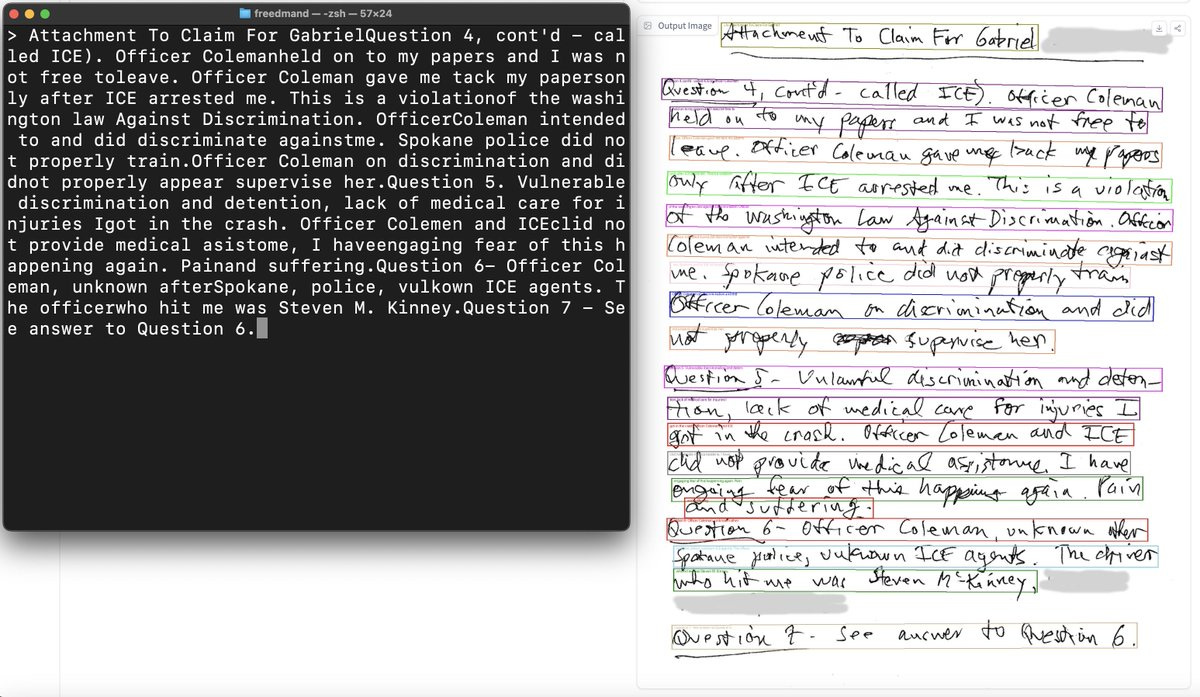 freedmand — -zsh — 57×24
> Attachment To Claim For GabrielQuestion 4, cont'd – cal
led ICE). Officer Colemanheld on to my papers and I was n
ot free toleave. Officer Coleman gave me tack my paperson
ly after ICE arrested me. This is a violationof the washi
ngton law Against Discrimination. OfficerColeman intended
 to and did discriminate againstme. Spokane police did no
t properly train.Officer Coleman on discrimination and di
dnot properly appear supervise her.Question 5. Vulnerable
 discrimination and detention, lack of medical care for i
njuries Igot in the crash. Officer Colemen and ICEclid no
t provide medical asistome, I haveengaging fear of this h
appening again. Painand suffering.Question 6– Officer Col
eman, unknown afterSpokane, police, vulkown ICE agents. T
he officerwho hit me was Steven M. Kinney.Question 7 – Se
e answer to Question 6.
Output Image
Attachment To Claim For Gabriel
Question 4, cont'd - called ICE). Officer Coleman
held on to my papers and I was not free to
leave. Officer Coleman gave me back my papers
only after ICE arrested me. This is a violation
of the Washington Law Against Discrimation. Officer
Coleman intended to and did discriminate against
me. Spokane police did not properly train
Officer Coleman on discrimination and did
not properly supervise her.
Question 5 - Unlawful discrimination and deten-
tion, lack of medical care for injuries I
got in the crash. Officer Coleman and ICE
did not provide medical assistance. I have
ongoing fear of this happening again. Pain
and suffering.
Question 6 - Officer Coleman, unknown other
Spokane police, unknown ICE agents. The driver
who hit me was Steven McKinney,
Question 7 - See answer to Question 6.